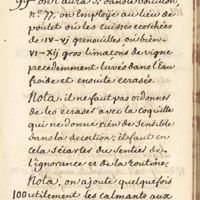 99 on l'aura S. dans le bouillon,
n.º 77, on emploÿe au lieu de
poulet ou les cuisses ecorchées
de IV-VI grenouilles ou bien
VI-XII gros limaçons de vigne
precedemment lavés dans l'eau
froide et ensuite ecrasés.
Nota, il ne faut pas ordonner
de les ecraser avec la coquille
qui ne donne rien de Sensible
dans la decoction; il faut en
cela S'écarter du Sentier de
l'ignorance et de la routine.
Nota, on ajoute quelquefois
100 utilement les calmants aux